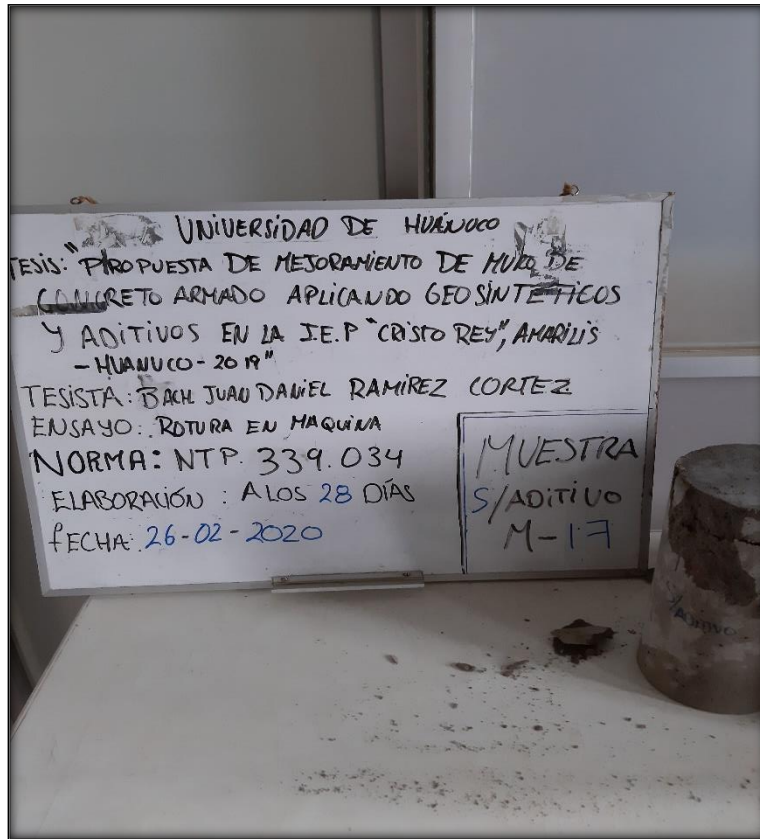 UNIVERSIDAD DE HUÁNUCO
TESIS: "PROPUESTA DE MEJORAMIENTO DE MURO DE
CONCRETO ARMADO APLICANDO GEOSINTETICOS
Y ADITIVOS EN LA I.E.P "CRISTO REY", AMARILIS
- HUANUCO - 2019"
TESISTA: BACH. JUAN DANIEL RAMIREZ CORTEZ
ENSAYO: ROTURA EN MAQUINA
NORMA: NTP. 339.034
ELABORACIÓN : A LOS 28 DÍAS
FECHA: 26-02-2020
MUESTRA
S/ADITIVO
M-17
S/ADITIVO